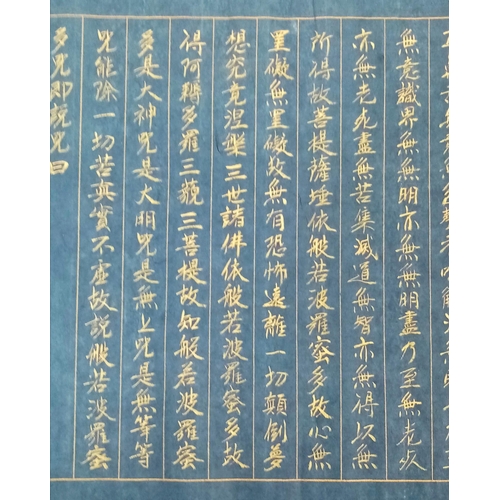 無意識界無無明亦無無明盡乃至無老死
亦無老死盡無苦集滅道無智亦無得以無
所得故菩提薩埵依般若波羅蜜多故心無
罣礙無罣礙故無有恐怖遠離一切顛倒夢
想究竟涅槃三世諸佛依般若波羅蜜多故
得阿耨多羅三藐三菩提故知般若波羅蜜
多是大神咒是大明咒是無上咒是無等等
咒能除一切苦真實不虛故說般若波羅蜜
多咒即說咒曰